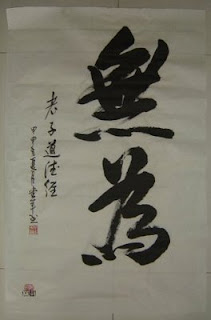 無為
老子道德经
甲申年夏月